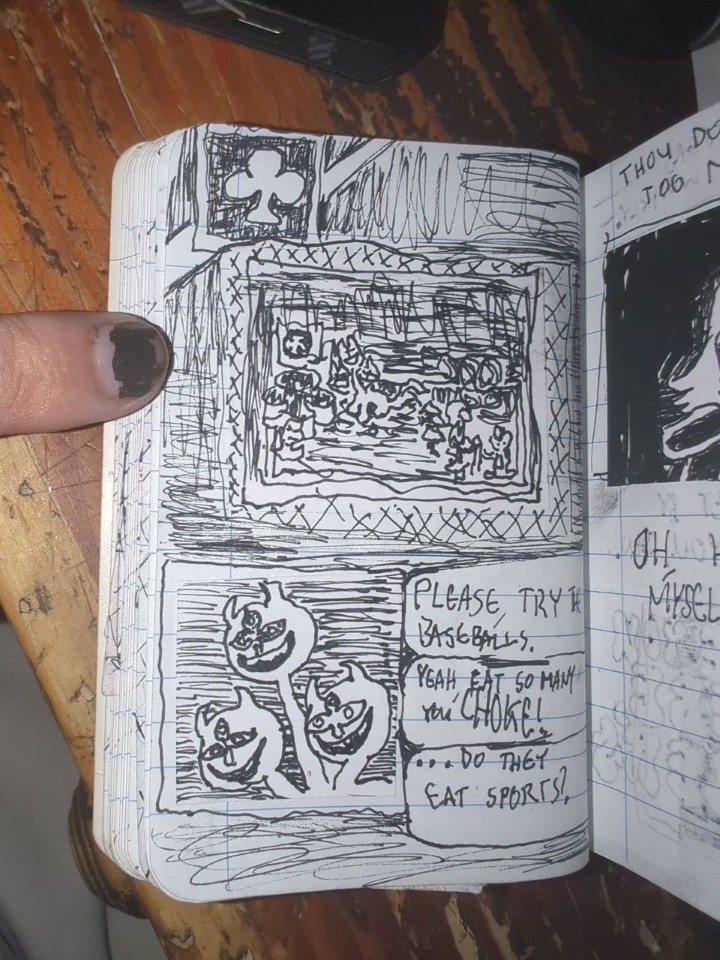 PLEASE, TRY THE
BASEBALLS.
YEAH EAT SO MANY
YOU CHOKE!
...DO THEY
EAT SPORTS?
THOU
OH